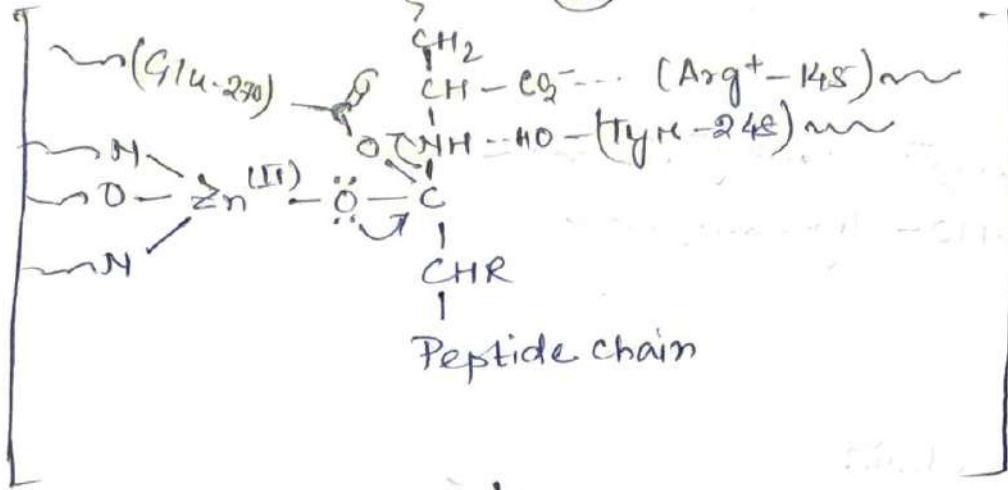 CH2
(Glu-270) O CH - CO2- --- (Arg+ - 145)
N O NH --- HO - (Tyr - 248)
O - Zn(II) - O - C
N CHR
Peptide chain